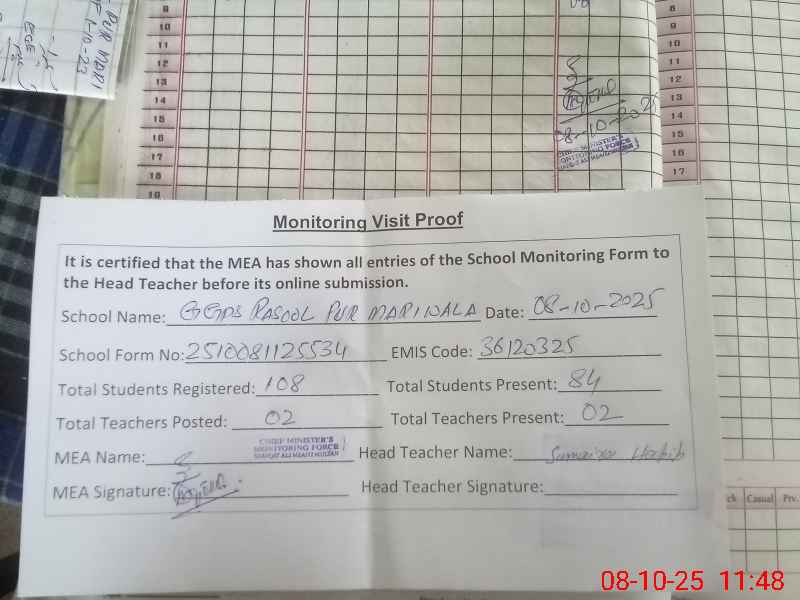 PUR MARI
1-10-23
8
9
10
11
12
13
14
15
16
17
18
8
9
10
11
12
13
14
15
16
17
08-10-2025
CHIEF MINISTER'S
MONITORING FORCE
Monitoring Visit Proof
It is certified that the MEA has shown all entries of the School Monitoring Form to
the Head Teacher before its online submission.
School Name: GGPS RASOOL PUR MARIWALA Date: 08-10-2025
School Form No: 2510081125534 EMIS Code: 36120325
Total Students Registered: 108 Total Students Present: 84
Total Teachers Posted: 02 Total Teachers Present: 02
CHIEF MINISTER'S
MONITORING FORCE
MEA Name: Head Teacher Name: Sumaira Habib
MEA Signature: Head Teacher Signature:
Casual Prv.
08-10-25 11:48